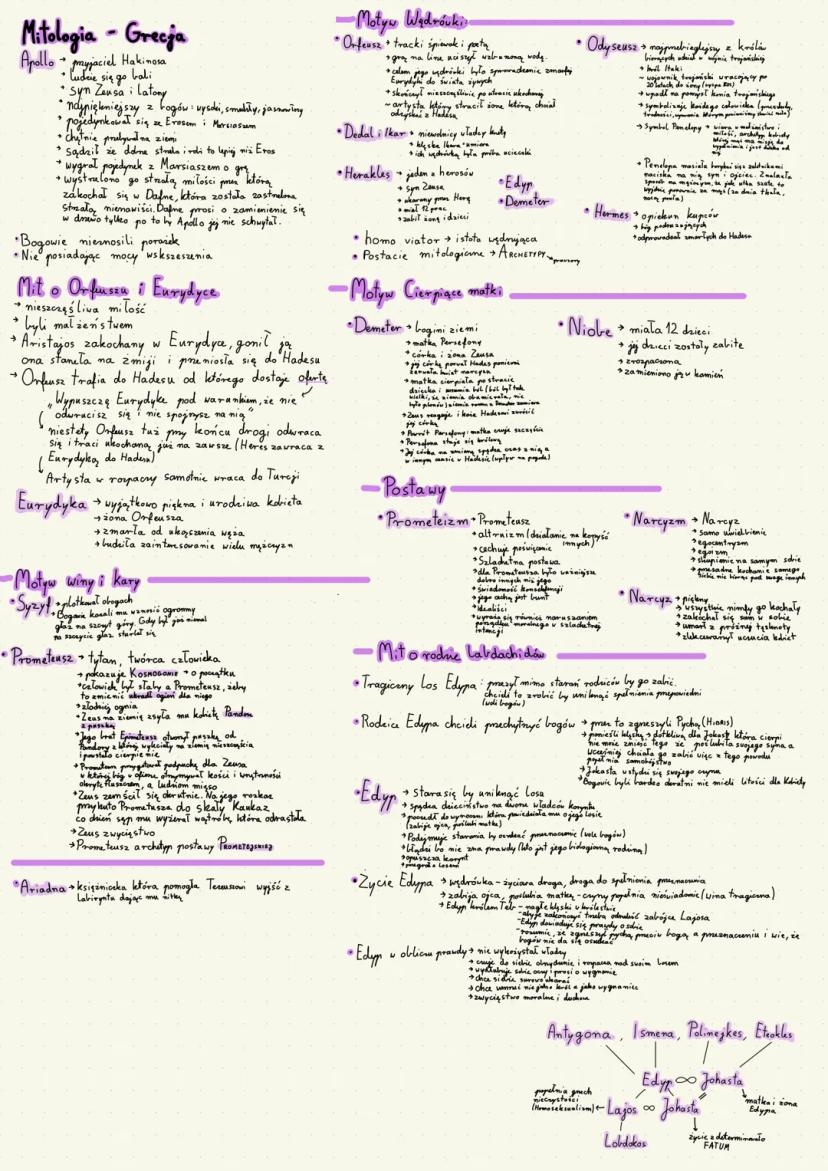 Mitologia - Grecja
Apollo → przyjaciel Hakinosa
→ ludzie się go bali
→ syn Zeusa i Latony
→ najpiękniejszy z bogów: wysoki, smukły, jasnowłosy
→ pojedynkował się z Erosem i Marsiaszem
→ chętnie przebywał na ziemi
→ Sądził że dobrze strzela i robi to lepiej niż Eros
→ wygrał pojedynek z Marsiaszem o grę
→ wystrzelono go strzałą miłości przez którą
zakochał się w Dafne, która została zastrzelona
strzałą nienawiści. Dafne prosi o zamienienie się
w drzewo tylko po to by Apollo jej nie schwytał.
• Bogowie nieznosili porażek
• Nie posiadając mocy wskszeszenia
Mit o Orfeuszu i Eurydyce
→ nieszczęśliwa miłość
→ byli małżeństwem
→ Aristajos zakochany w Eurydyce, gonił ją
ona stanęła na żmiji i przeniosła się do Hadesu
→ Orfeusz trafia do Hadesu od którego dostaje ofertę
"Wypuszczę Eurydykę pod warunkiem, że nie
odwrócisz się i nie spojrzysz na nią"
niestety Orfeusz tuż przy końcu drogi odwraca
się i traci ukochaną już na zawsze (Heres zawraca z
Eurydyką do Hadesu)
Artysta w rozpaczy samotnie wraca do Turcji
Eurydyka → wyjątkowo piękna i urodziwa kobieta
→ żona Orfeusza
→ zmarła od ukąszenia węża
→ budziła zainteresowanie wielu mężczyzn
Motyw winy i kary
• Syzyf → plotkował o bogach
→ Bogowie kazali mu wznosić ogromny
głaz na szczyt góry. Gdy był już niemal
na szczycie głaz staczał się
• Prometeusz → tytan, twórca człowieka
→ pokazuje Kosmogonie → o początku
→ człowiek był słaby a Prometeusz, żeby
to zmienić ukradł ogień dla niego
→ złodziej ognia
→ Zeus na ziemię zsyła mu kobietę Pandorę
z puszką
→ Jego brat Epimeteusz otworzył puszkę od
Pandory z której wyleciały na ziemię nieszczęścia
i powstało cierpienie
→ Prometeusz przygotował podpuchę dla Zeusa
w której bóg w ofierze otrzymywał kości i wnętrzności
okryte tłuszczem, a ludziom mięso
→ Zeus zemścił się okrutnie. Na jego rozkaz
przykuto Prometeusza do skały Kaukaz
co dzień sęp mu wyżerał wątrobę, która odrastała
→ Zeus zwycięstwo
→ Prometeusz archetyp postawy Prometejskiej
• Ariadna → księżniczka która pomogła Tezeuszowi wyjść z
Labiryntu dając mu nitkę
Motyw Wędrówki
• Orfeusz → tracki śpiewak i poeta
→ grą na lirze uciszył wzburzoną wodę.
→ celem jego wędrówki było sprowadzenie zmarłej
Eurydyki do świata żywych
→ skończył nieszczęśliwie po utracie ukochanej
~ artysta który stracił żonę którą chciał
odzyskać z Hadesu
• Dedal i Ikar → niewolnicy władcy Krety
→ klęska Ikara - zmarł
→ ich wędrówką była próba ucieczki
• Herakles → jeden z herosów
→ syn Zeusa
→ ukarany przez Herę
→ miał 12 prac
→ zabił żonę i dzieci
• Edyp
• Demeter
• homo viator → istota wędrująca
• Postacie mitologiczne → Archetypy → prawzory
• Odyseusz → najprzebieglejszy z królów
biorących udział w wojnie trojańskiej
→ król Itaki
~ wojownik trojański wracający po
20 latach do żony (wyspa Itaka)
→ wpadł na pomysł konia trojańskiego
→ symbolizuje każdego człowieka (przeszkody,
trudności, wyzwania którym powinniśmy stawić czoła)
→ Symbol Penelopy →
→ Penelopa musiała borykać się z zalotnikami
naciska na nią syn i ojciec. Znalazła
sposób na mężczyzn, że jak utka szatę to
wyjdzie ponownie za mąż (za dnia tkała,
nocą pruła)
• Hermes → opiekun kupców
→ bóg podróżujących
→ odprowadzał zmarłych do Hadesu
Motyw Cierpiącej matki
• Demeter → bogini ziemi
→ matka Persefony
→ córka i żona Zeusa
→ jej córkę porwał Hades ponieważ
zerwała kwiat narcyza
→ matka cierpiała po stracie
dziecka i
wielki, że ziemia obumierała, nie
→ Zeus reaguje i każe Hadesowi zwrócić
jej córkę
→ Powrót Persefony: matka czuje szczęście
→ Persefona staje się królową
→ Jej córka na zmianę spędza czas z nią a
w innym czasie w Hadesie (wpływ na pogodę)
• Niobe → miała 12 dzieci
→ jej dzieci zostały zabite
→ zrozpaczona
→ zamieniono ją w kamień
Postawy
• Prometeizm → Prometeusz
→ altruizm (działanie na korzyść
innych)
→ cechuje poświęcenie
→ Szlachetna postawa
→ dla Prometeusza było ważniejsze
dobro innych niż jego
→ świadomość konsekwencji
→ jego cechą jest bunt
→ Idealiści
→ wyraża się również naruszaniem
porządku moralnego w szlachetnej
intencji
• Narcyzm → Narcyz
→ samo uwielbienie
→ egocentryzm
→ egoizm
→ skupienie na samym sobie
→ przesadne kochanie samego
siebie nie biorąc pod uwagę innych
• Narcyz → piękny
→ wszystkie nimfy go kochały
→ zakochał się sam w sobie
→ umarł z próżnej tęsknoty
→ zlekceważył uczucia kobiet
Mit o rodzie Labdachidów
• Tragiczny los Edypa: przeżył mimo starań rodziców by go zabić.
chcieli to zrobić by uniknąć spełnienia przepowiedni
(woli bogów)
• Rodzice Edypa chcieli przechytrzyć bogów → przez to zgrzeszyli Pychą (Hibris)
→ ponieśli klęskę → dotkliwą dla Jokasty która cierpi
nie może znieść tego że poślubiła swojego syna a
wcześniej chciała go zabić więc z tego powodu
popełnia samobójstwo
→ Jokasta wstydzi się swojego czynu
→ Bogowie byli bardzo okrutni nie mieli litości dla Kobiety
• Edyp → stara się by uniknąć losu
→ spędza dzieciństwo na dworze władców koryntu
→ poszedł do wyroczni która powiedziała mu o jego losie
(zabije ojca, poślubi matkę)
→ Podejmuje starania by oszukać przeznaczenie (wole bogów)
→ błądzi bo nie zna prawdy (kto jest jego biologiczną rodziną)
→ opuszcza korynt
→ przegrał z losem
• Życie Edypa → wędrówka - życiowa droga, droga do spełnienia przeznaczenia
→ zabija ojca, poślubia matkę - czyny popełnia nieświadomie (wina tragiczna)
→ Edyp królem Teb - nagłe klęski w królestwie
- aby je zakończyć trzeba odnaleźć zabójcę Lajosa
- Edyp dowiaduje się prawdy o sobie
- rozumie, że zgrzeszył pychą przeciw bogą a przeznaczeniu i wie, że
bogów nie da się oszukać
• Edyp w obliczu prawdy → nie wykorzystał władzy
→ czuje do siebie obrzydzenie i rozpacza nad swoim losem
→ wydłubuje sobie oczy i prosi o wygnanie
→ chce siebie surowo ukarać
→ chce umrzeć nie jako król a jako wygnaniec
→ zwycięstwo moralne i duchowe
Antygona, Ismena, Polinejkes, Eteokles
Edyp ∞ Jokasta
popełnia grzech
nieczystości
(Homoseksualizm) ← Lajos ∞ Jokasta
matka i żona
Edypa
Labdakos
życie zdeterminowało
FATUM